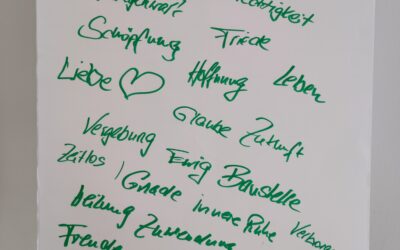 Schöpfung Friede
Liebe Hoffnung Leben
Glaube Zukunft
Vergebung Ewig Baustelle
Zeitlos Gnade innere Ruhe
Heilung Zuwendung
Freude